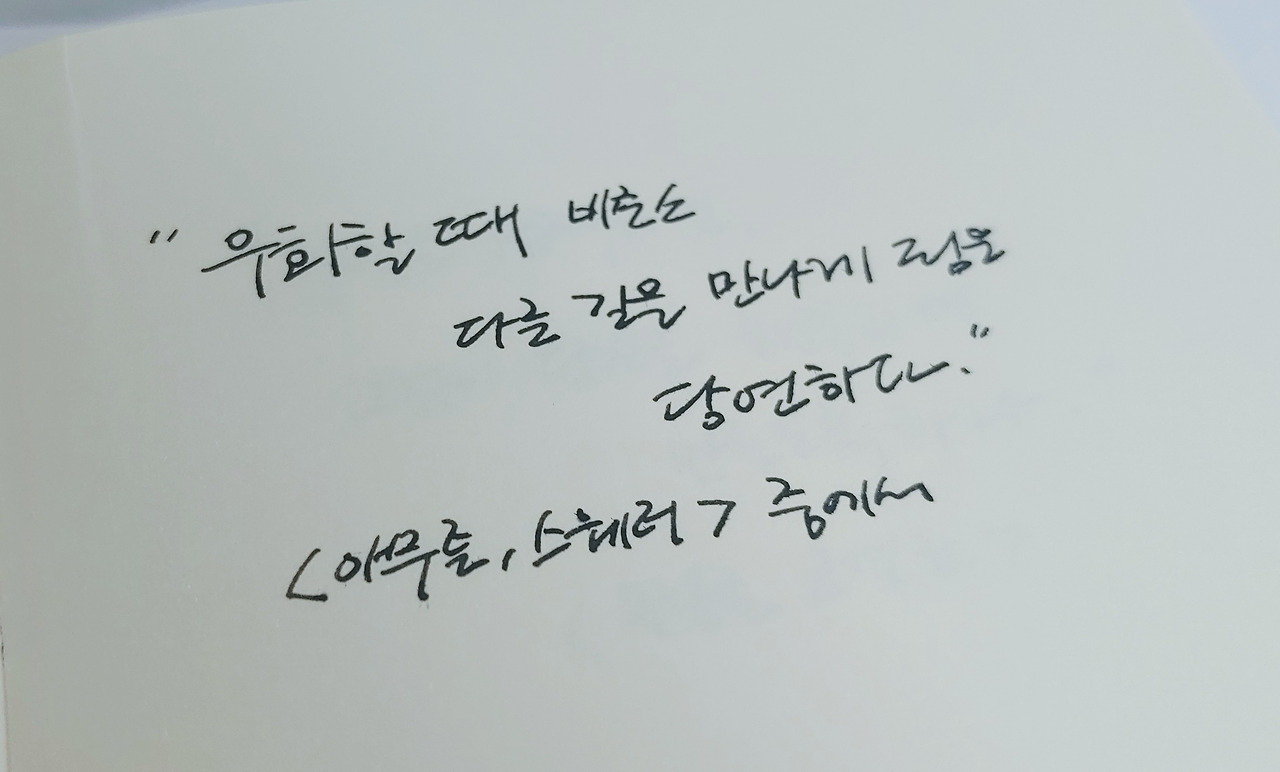 "우화할 때 비로소
다른 길을 만나게 됨은
당연하다."
<애무즐, 스웨러> 중에서